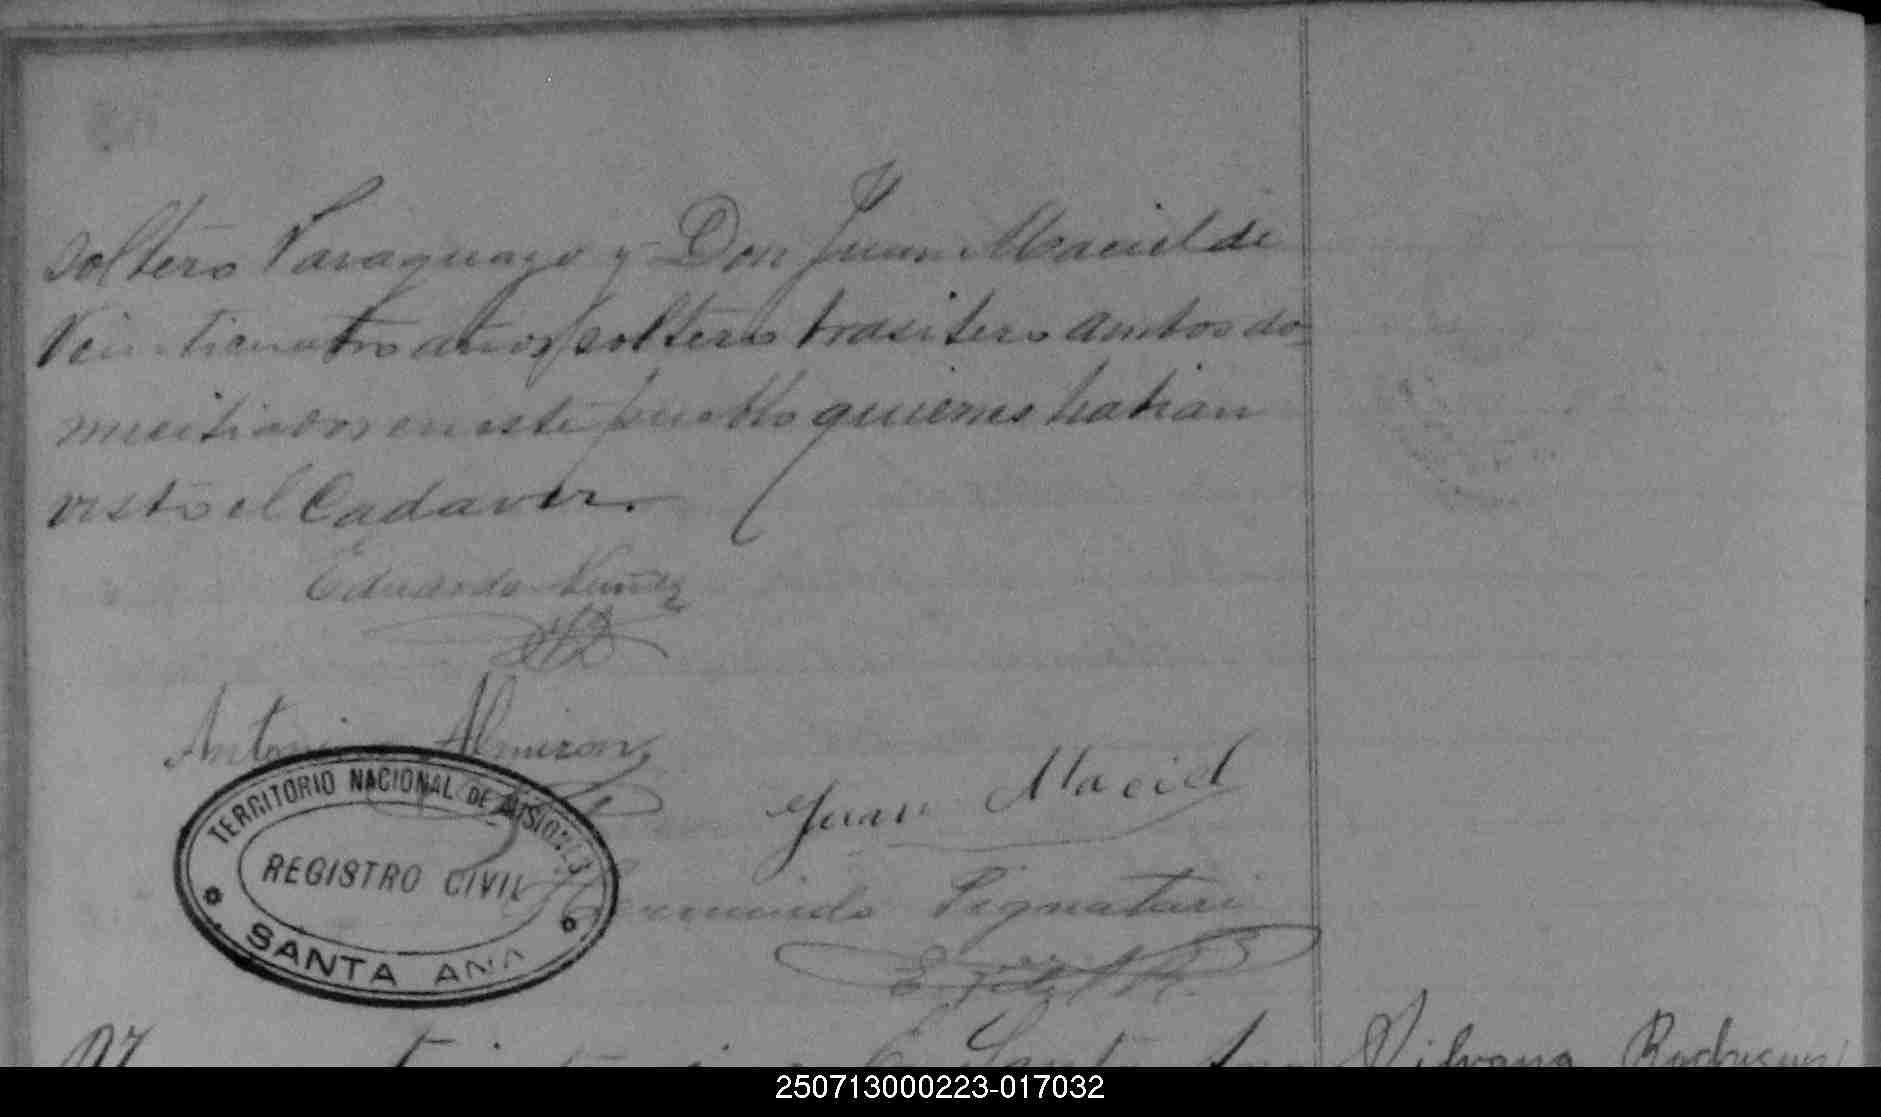 soltero Paraguayo y Don Juan Maciel de
Veinticuatro años soltero brasilero ambos do-
miciliados en este pueblo quienes habian
visto el Cadaver.
Eduardo Nuñez
Antonio Almiron
Juan Maciel
TERRITORIO NACIONAL DE MISIONES
REGISTRO CIVIL
SANTA ANA
Pignatari
Silvana Rodriguez
250713000223-017032